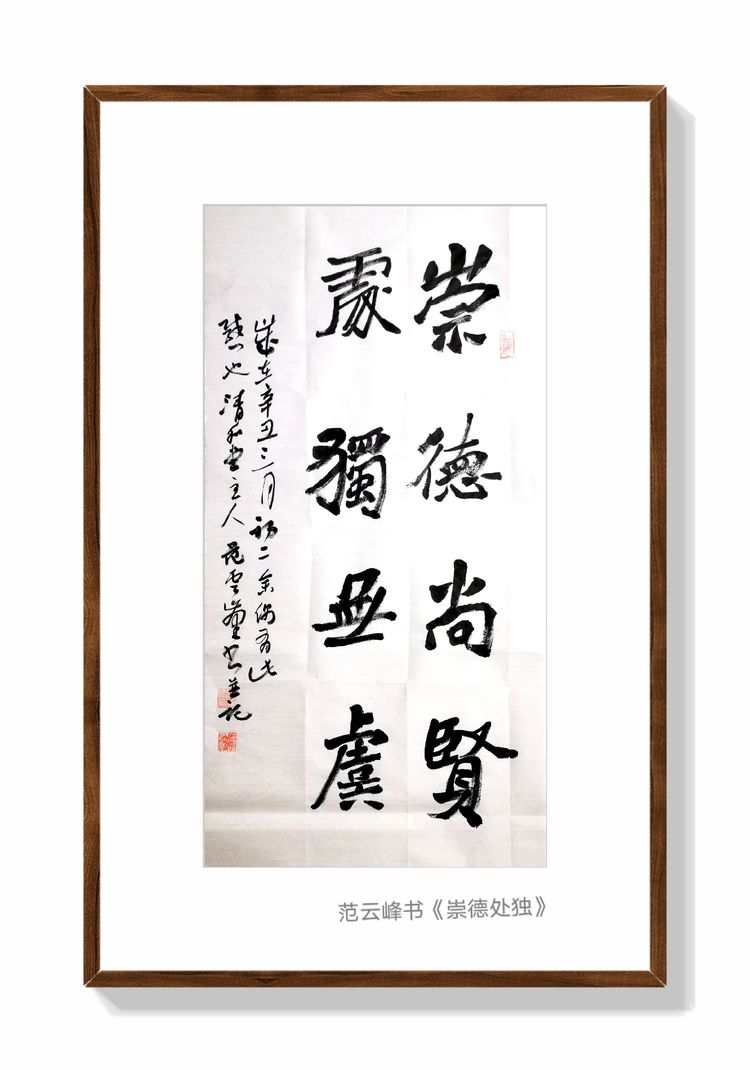 崇德尚賢
處獨無虞
歲在辛丑三月初二余偶有此
慧也清和堂主人范雲峰書并記
范云峰书《崇德处独》